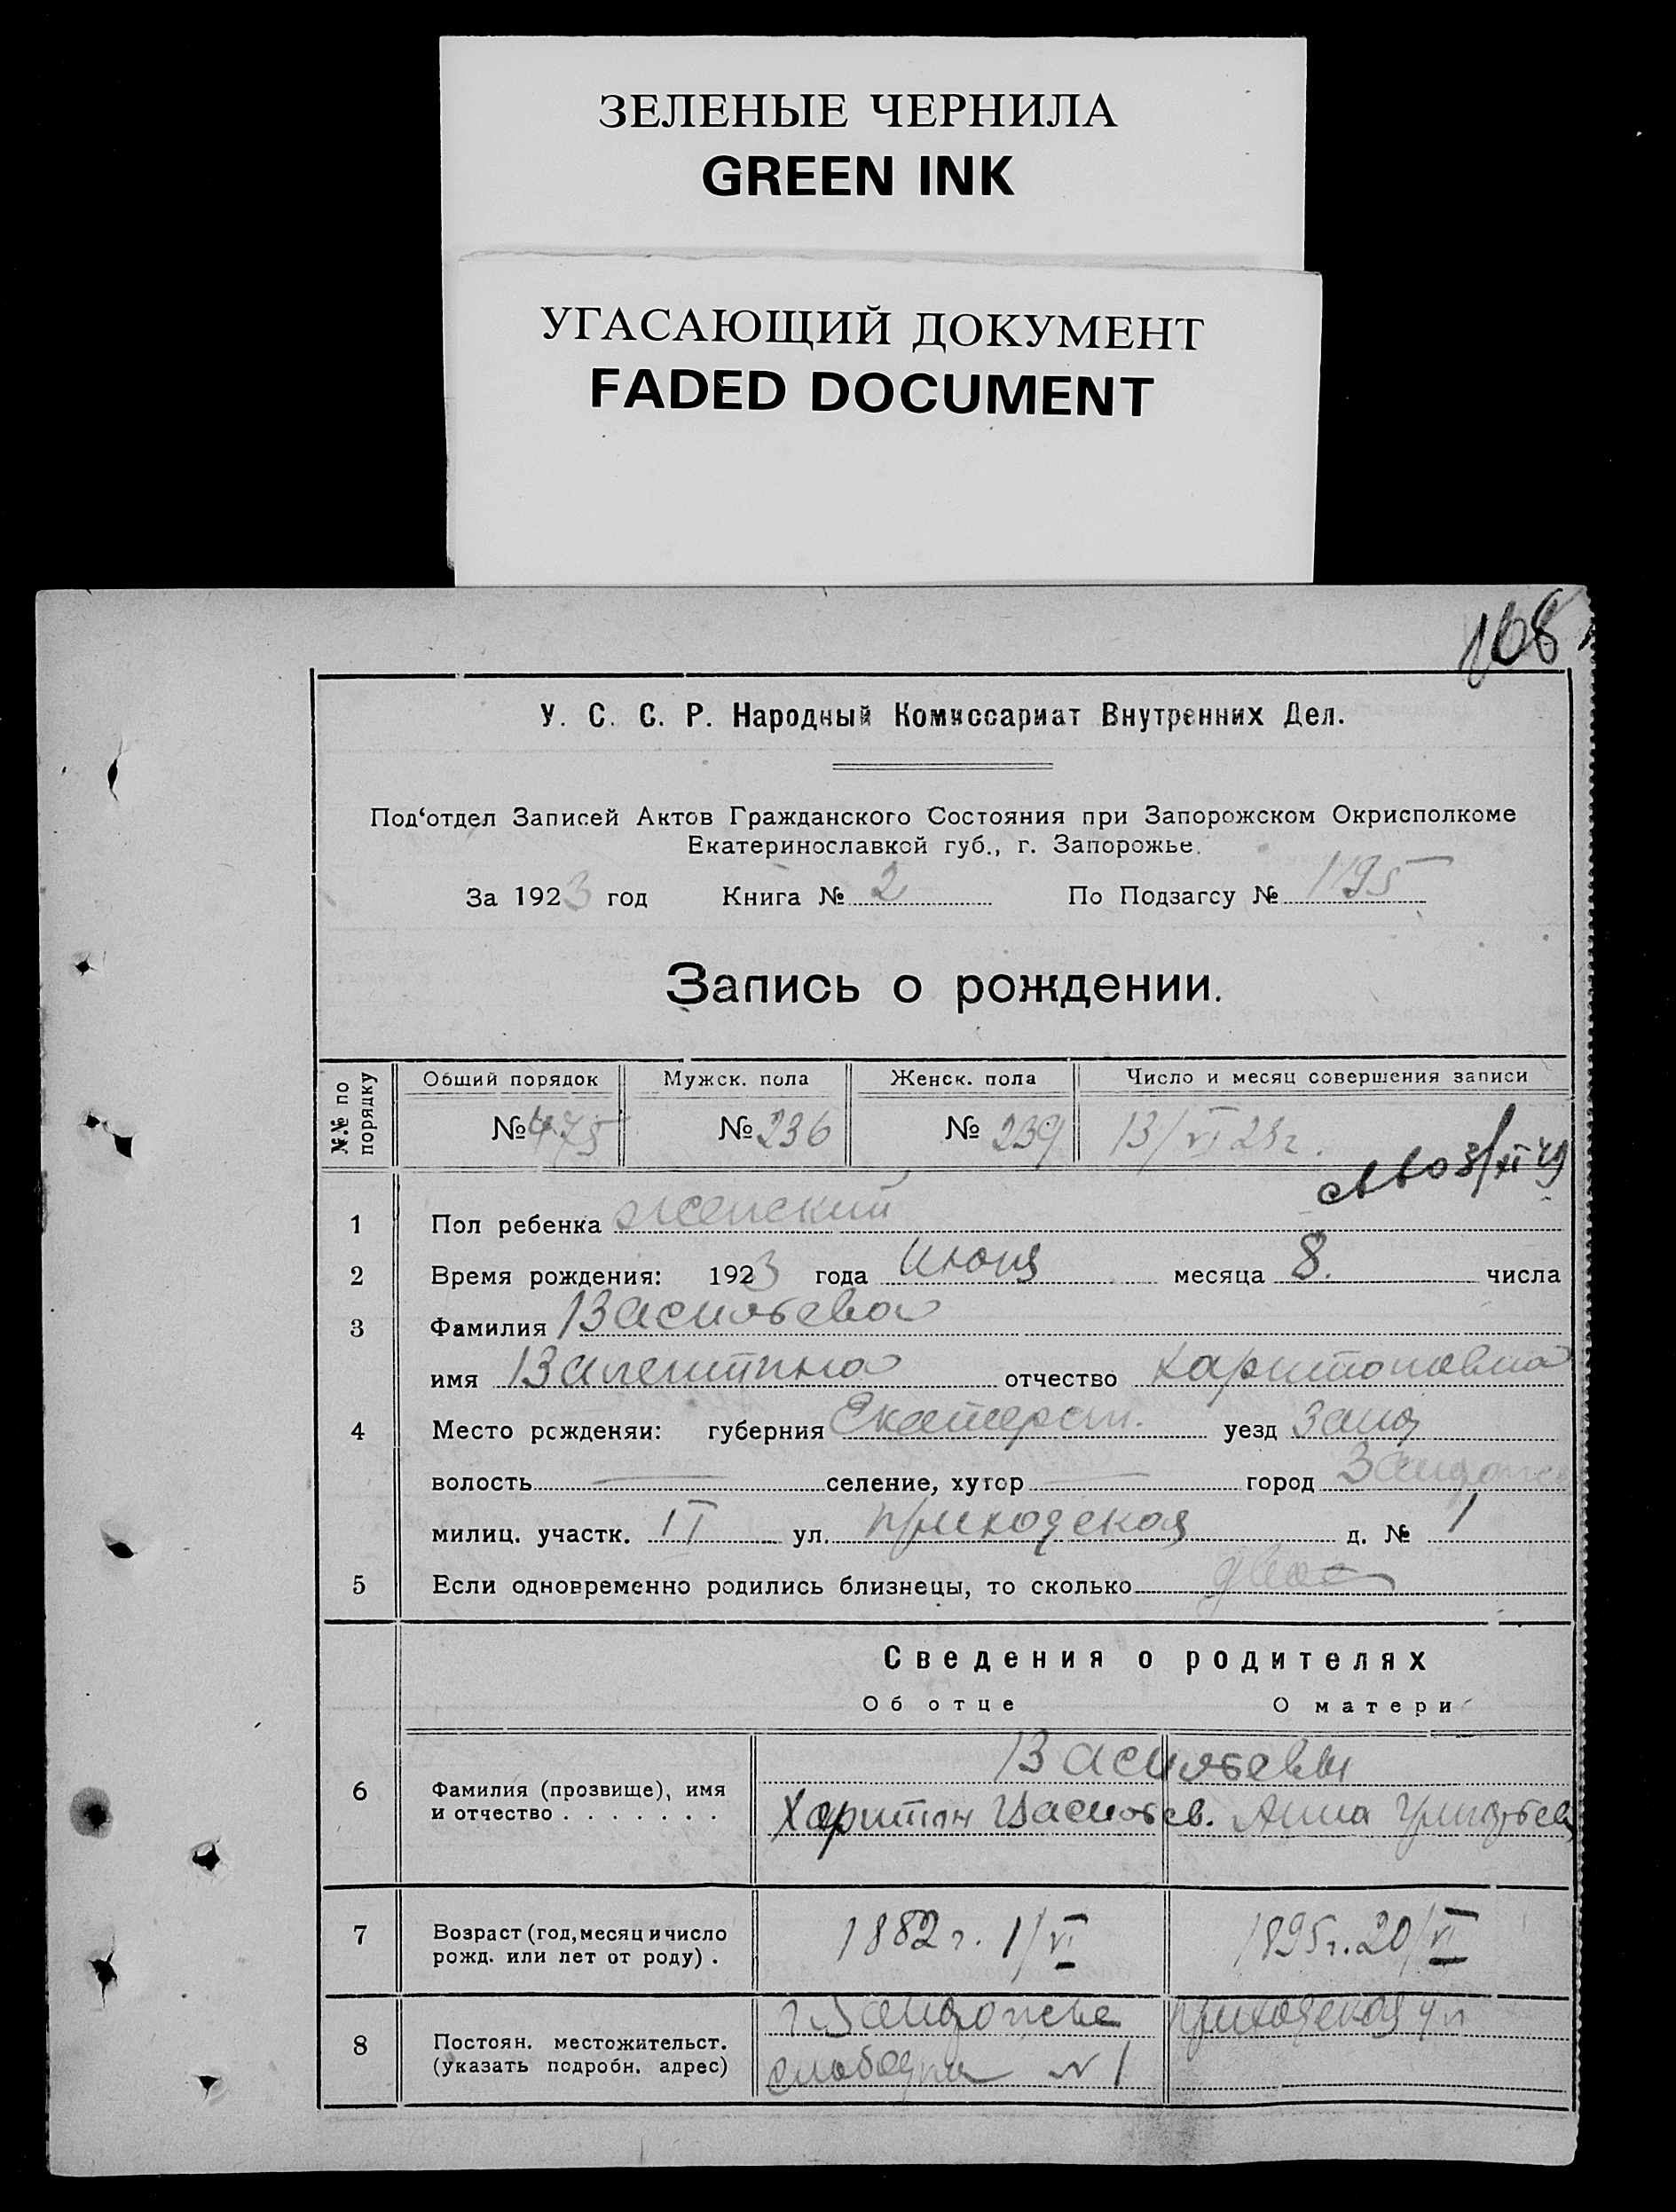 ЗЕЛЕНЫЕ ЧЕРНИЛА
GREEN INK
УГАСАЮЩИЙ ДОКУМЕНТ
FADED DOCUMENT
168
У. С. С. Р. Народный Комиссариат Внутренних Дел.
Под‘отдел Записей Актов Гражданского Состояния при Запорожском Окрисполкоме
Екатеринославкой губ., г. Запорожье.
За 1923 год Книга № 2 По Подзагсу № 1195
Запись о рождении.
№№ по порядку Общий порядок Мужск. пола Женск. пола Число и месяц совершения записи
№ 475 № 236 № 239 13/VI 23г.
3/XI 49
1 Пол ребенка женский
2 Время рождения: 1923 года июня месяца 8. числа
3 Фамилия Васильева
имя Валентина отчество Харитоновна
4 Место рожденяи: губерния Екатер уезд Запор
волость — селение, хутор — город Запорожье
милиц. участк. II ул. Приходская д. № 1
5 Если одновременно родились близнецы, то сколько двое
Сведения о родителях
Об отце О матери
6 Фамилия (прозвище), имя Васильевы
и отчество . . . . . . . Харитон Васильев. Анна Григорьев
7 Возраст (год, месяц и число 1882 г. 1/VI 1895 г. 20/VI
рожд. или лет от роду) .
8 г. Запорожье Приходская ул
Постоян. местожительст. слободка № 1
(указать подробн. адрес)